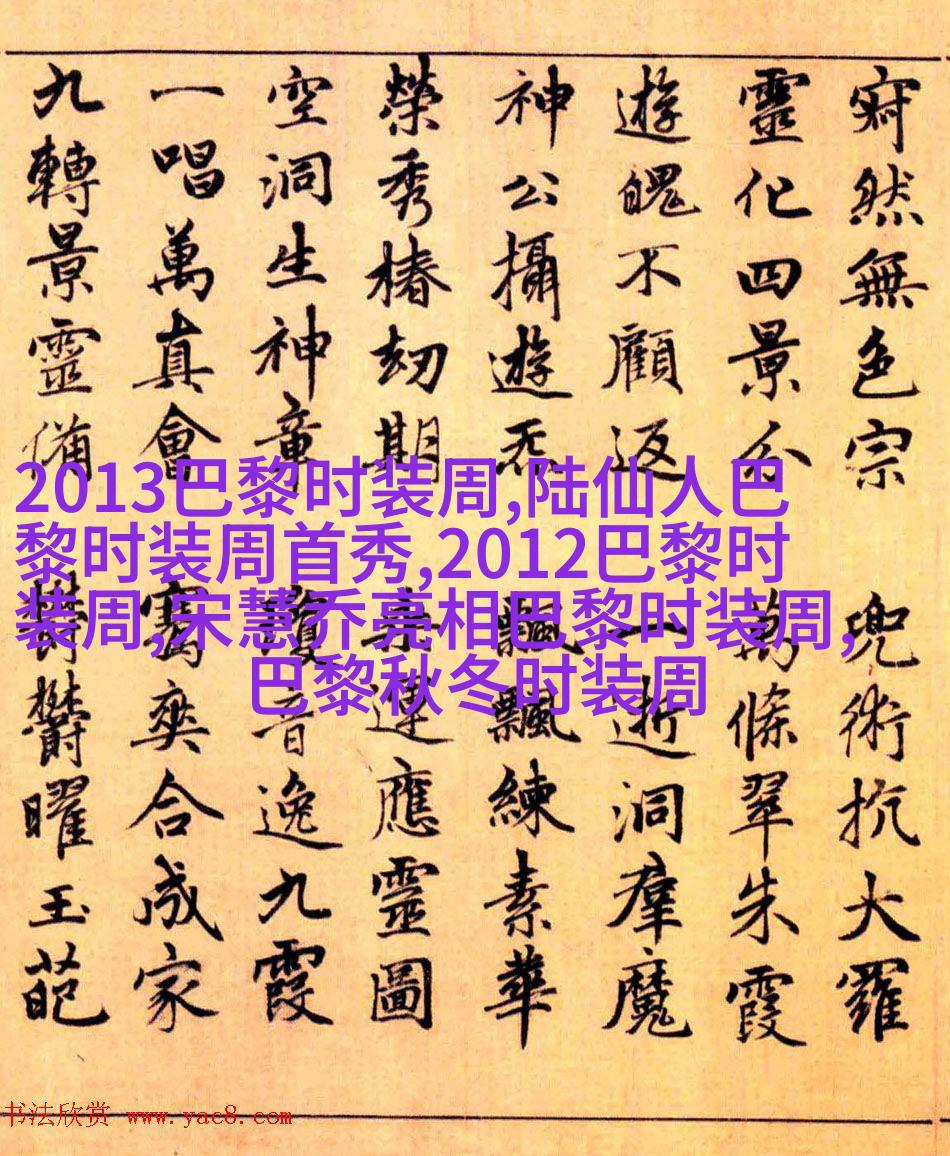 寂然無色宗 兜術抗大羅
靈化四景分 萬條翠朱霞
遊魄不顧返 一逝洞羣魔
神公攝遊炁 飄飄練素華
榮秀椿劫期 應靈圖
空洞生神童 音逸九霞
一唱萬真會 騫爽合成家
九轉景靈備 鬱鬱曜玉葩
2013巴黎时装周,陆仙人巴
黎时装周首秀,2012巴黎时
装周,宋慧乔亮相巴黎时装周,
巴黎秋冬时装周
书法欣赏 www.yac8.com